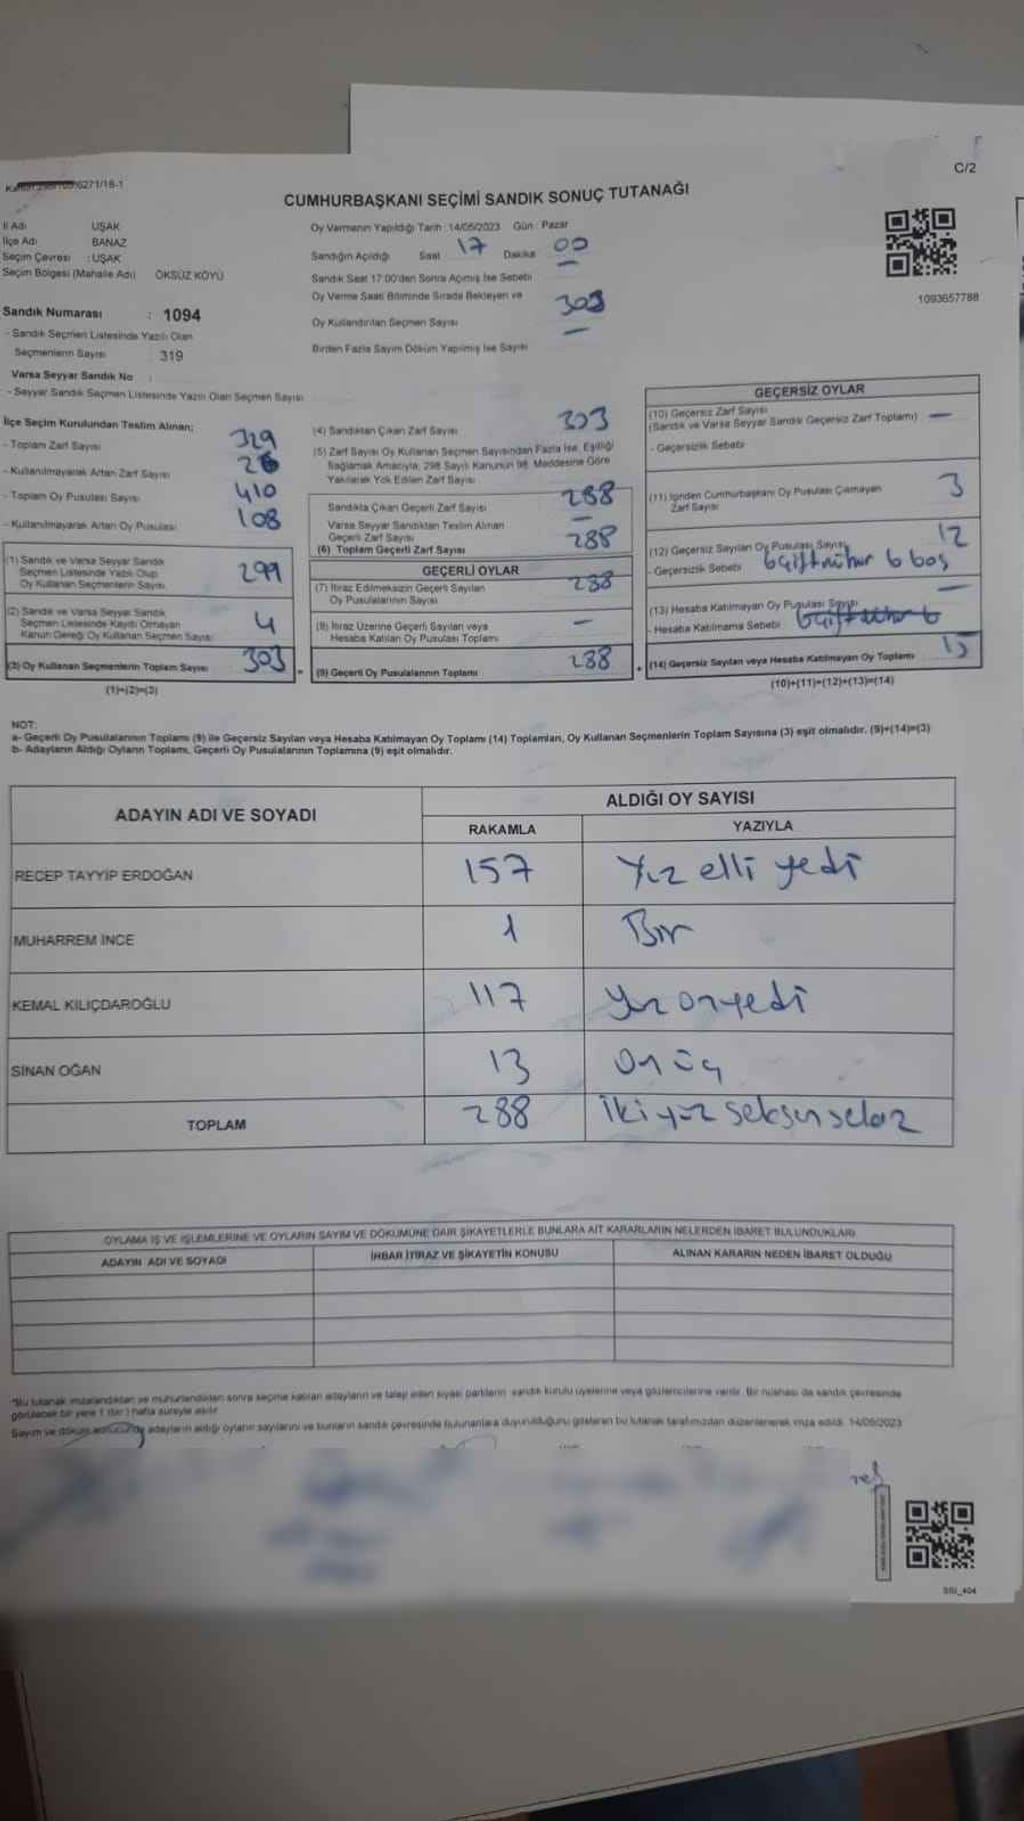 6271/18-1
C/2
CUMHURBAŞKANI SEÇİMİ SANDIK SONUÇ TUTANAĞI
İl Adı UŞAK
İlçe Adı BANAZ
Seçim Çevresi : UŞAK
Seçim Bölgesi (Mahalle Adı) ÖKSÜZ KÖYÜ
Sandık Numarası : 1094
- Sandık Seçmen Listesinde Yazılı Olan
Seçmenlerin Sayısı 319
Varsa Seyyar Sandık No :
- Seyyar Sandık Seçmen Listesinde Yazılı Olan Seçmen Sayısı
Oy Vermenin Yapıldığı Tarih : 14/05/2023 Gün : Pazar
Sandığın Açıldığı Saat 17 Dakika 00
Sandık Saat 17:00'den Sonra Açılmış İse Sebebi
Oy Verme Saati Bitiminde Sırada Bekleyen ve
Oy Kullandırılan Seçmen Sayısı
303
Birden Fazla Sayım Döküm Yapılmış İse Sayısı
1093657788
İlçe Seçim Kurulundan Teslim Alınan:
- Toplam Zarf Sayısı 329
- Kullanılmayarak Artan Zarf Sayısı 26
- Toplam Oy Pusulası Sayısı 410
- Kullanılmayarak Artan Oy Pusulası 108
(1) Sandık ve Varsa Seyyar Sandık
Seçmen Listesinde Yazılı Olup
Oy Kullanan Seçmenlerin Sayısı
299
(2) Sandık ve Varsa Seyyar Sandık
Seçmen Listesinde Kayıtlı Olmayan
Kanun Gereği Oy Kullanan Seçmen Sayısı
4
(3) Oy Kullanan Seçmenlerin Toplam Sayısı 303
(1)+(2)=(3)
(4) Sandıktan Çıkan Zarf Sayısı 303
(5) Zarf Sayısı Oy Kullanan Seçmen Sayısından Fazla İse, Eşitliği
Sağlamak Amacıyla, 298 Sayılı Kanunun 98. Maddesine Göre
Yakılarak Yok Edilen Zarf Sayısı
Sandıkta Çıkan Geçerli Zarf Sayısı 288
Varsa Seyyar Sandıktan Teslim Alınan
Geçerli Zarf Sayısı —
(6) Toplam Geçerli Zarf Sayısı 288
GEÇERLİ OYLAR
(7) İtiraz Edilmeksizin Geçerli Sayılan
Oy Pusulalarının Sayısı
288
(8) İtiraz Üzerine Geçerli Sayılan veya
Hesaba Katılan Oy Pusulası Toplamı
—
(9) Geçerli Oy Pusulalarının Toplamı 288
GEÇERSİZ OYLAR
(10) Geçersiz Zarf Sayısı
(Sandık ve Varsa Seyyar Sandık Geçersiz Zarf Toplamı) —
- Geçersizlik Sebebi
(11) İçinden Cumhurbaşkanı Oy Pusulası Çıkmayan
Zarf Sayısı
3
(12) Geçersiz Sayılan Oy Pusulası Sayısı 12
- Geçersizlik Sebebi 6 çift mühür 6 boş
(13) Hesaba Katılmayan Oy Pusulası Sayısı —
- Hesaba Katılmama Sebebi
(14) Geçersiz Sayılan veya Hesaba Katılmayan Oy Toplamı 15
(10)+(11)+(12)+(13)=(14)
NOT:
a- Geçerli Oy Pusulalarının Toplamı (9) ile Geçersiz Sayılan veya Hesaba Katılmayan Oy Toplamı (14) Toplamları, Oy Kullanan Seçmenlerin Toplam Sayısına (3) eşit olmalıdır. (9)+(14)=(3)
b- Adayların Aldığı Oyların Toplamı, Geçerli Oy Pusulalarının Toplamına (9) eşit olmalıdır.
ADAYIN ADI VE SOYADI
ALDIĞI OY SAYISI
RAKAMLA YAZIYLA
RECEP TAYYİP ERDOĞAN 157 Yüz elli yedi
MUHARREM İNCE 1 Bir
KEMAL KILIÇDAROĞLU 117 Yüz onyedi
SİNAN OĞAN 13 on üç
TOPLAM 288 iki yüz seksen sekiz
OYLAMA İŞ VE İŞLEMLERİNE VE OYLARIN SAYIM VE DÖKÜMÜNE DAİR ŞİKAYETLERLE BUNLARA AİT KARARLARIN NELERDEN İBARET BULUNDUKLARI
ADAYIN ADI VE SOYADI İHBAR İTİRAZ VE ŞİKAYETİN KONUSU ALINAN KARARIN NEDEN İBARET OLDUĞU
*Bu tutanak imzalandıktan ve mühürlendikten sonra seçime katılan adayların ve talep eden siyasi partilerin sandık kurulu üyelerine veya gözlemcilerine verilir. Bir nüshası da sandık çevresinde
görülecek bir yere 1 (bir) hafta süreyle asılır.
Sayım ve döküm sonucunda adayların aldığı oyların sayılarını ve bunların sandık çevresinde bulunanlara duyurulduğunu gösteren bu tutanak tarafımızdan düzenlenerek imza edildi. 14/05/2023